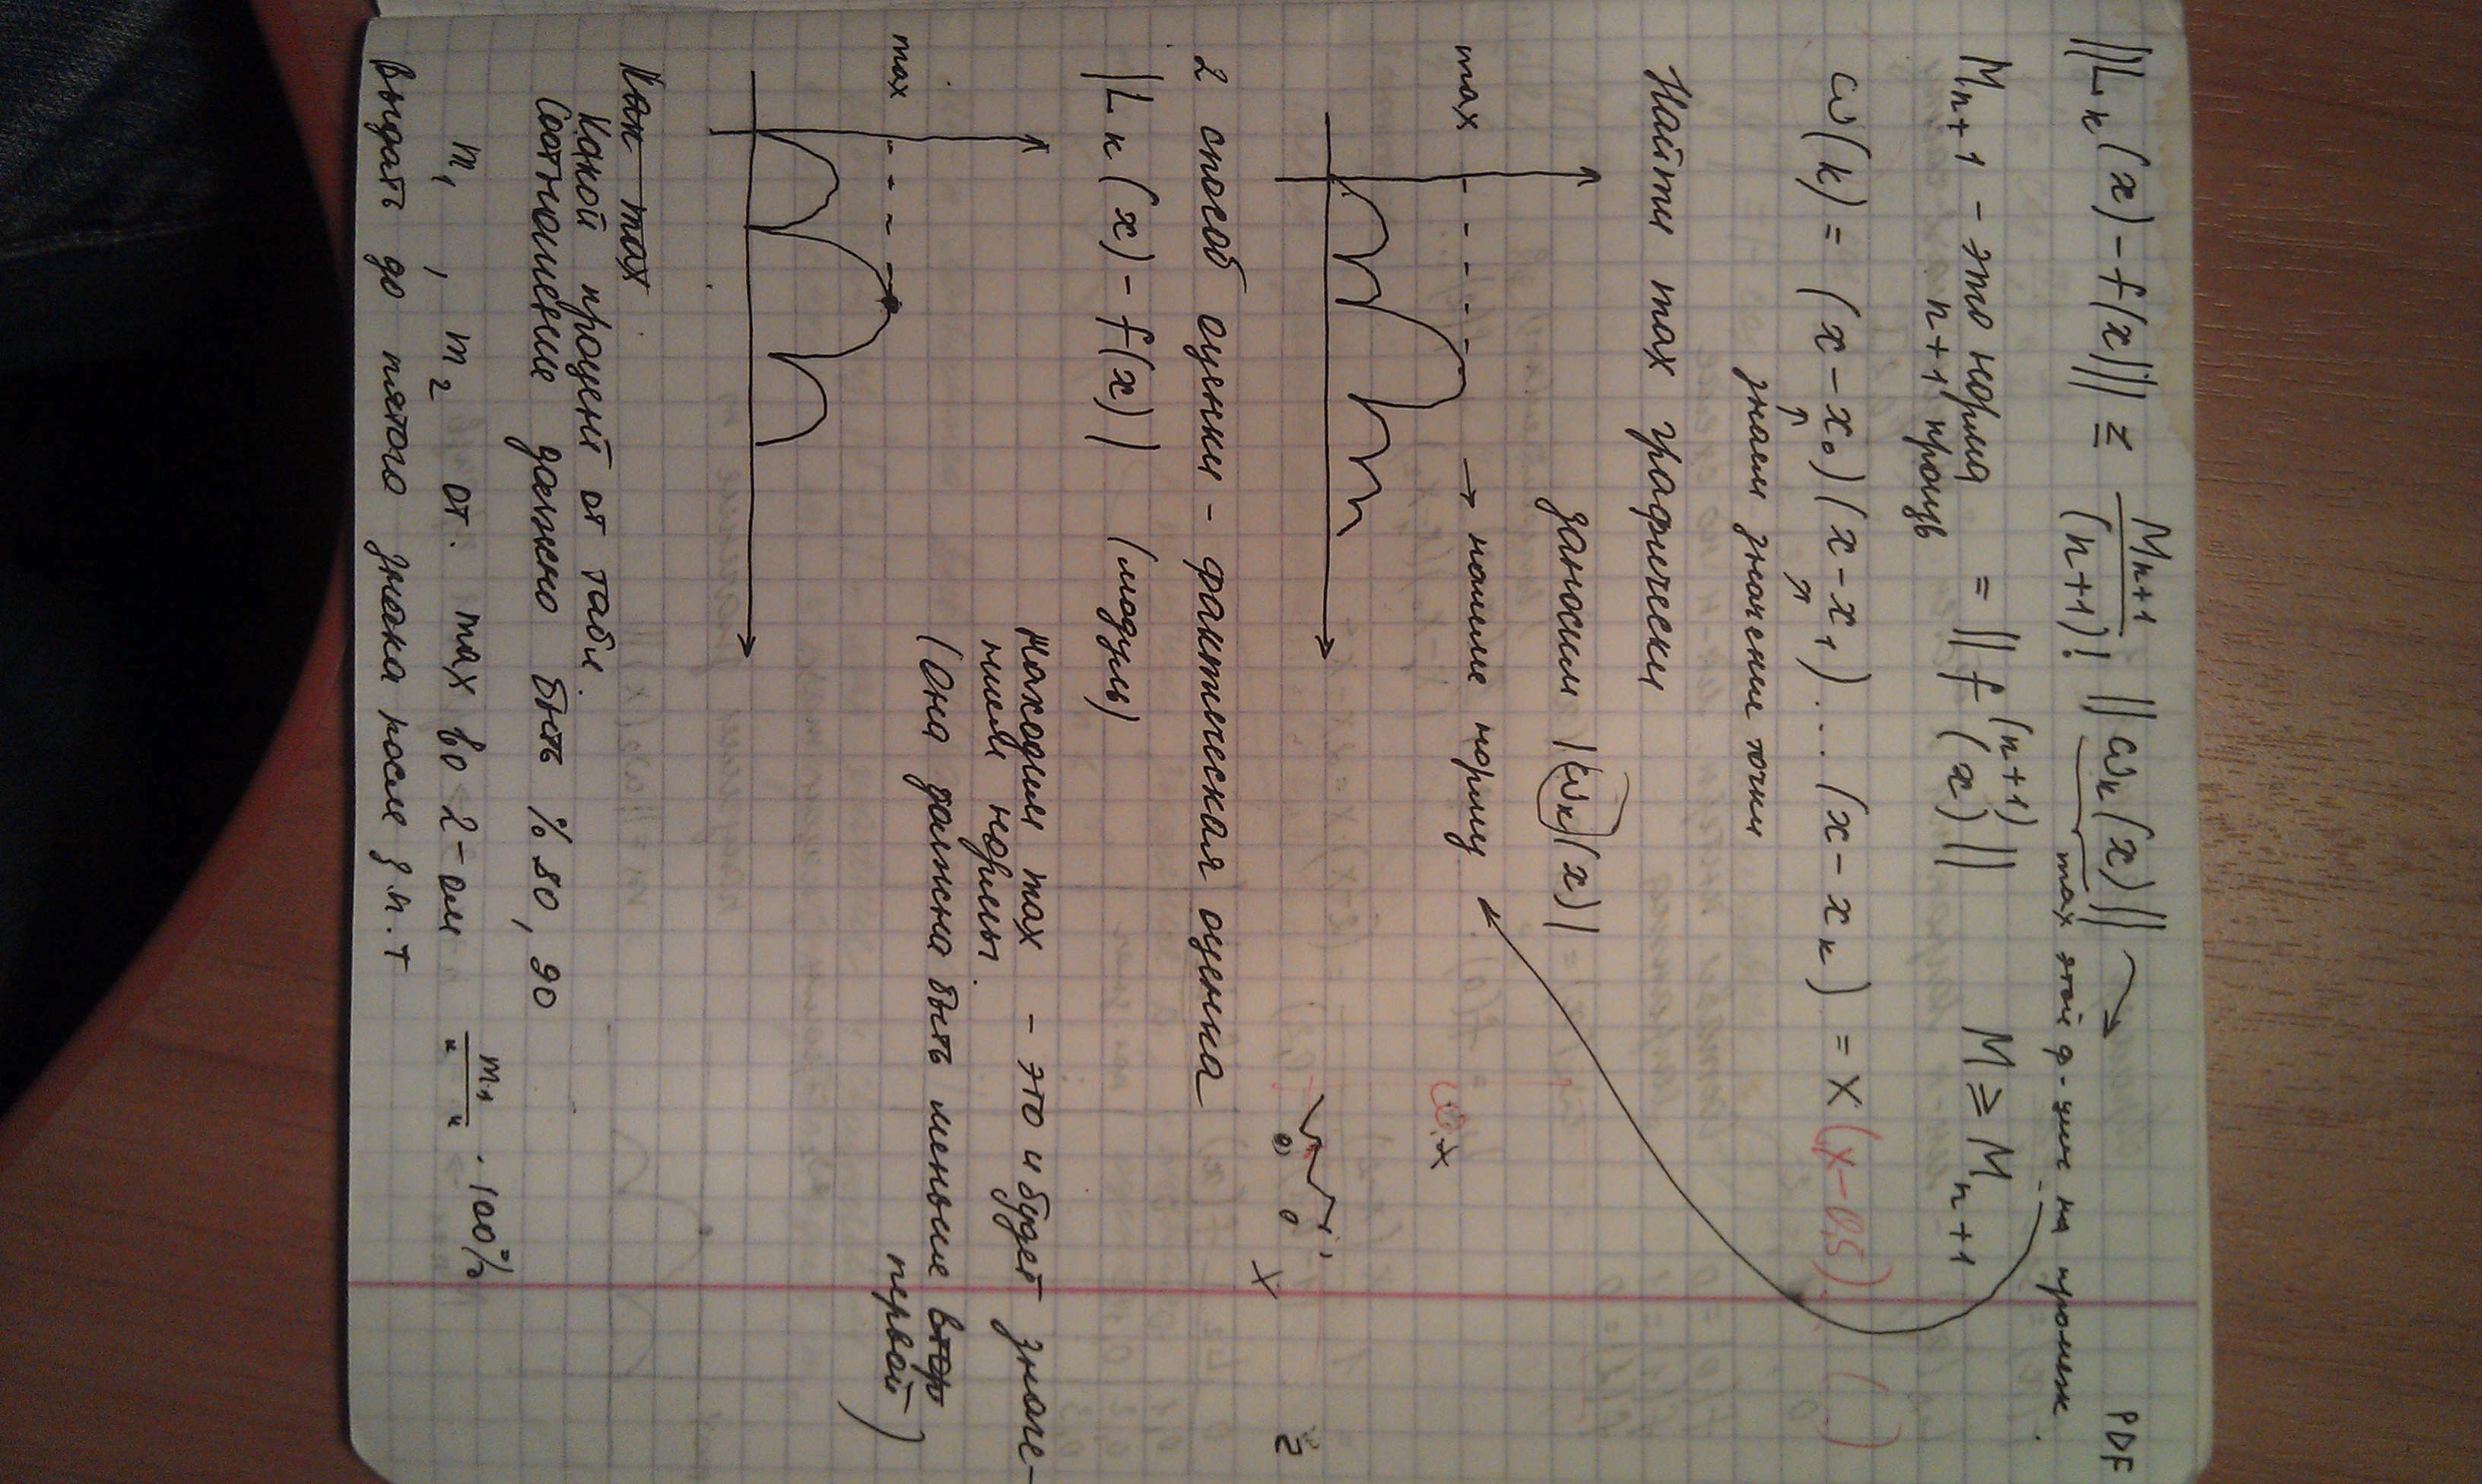 PDF
||Lₙ(x) - f(x)|| ≤ Mₙ₊₁ / (n+1)! ||ωₙ(x)||
max этой ф-ции на промеж
Mₙ₊₁ - это норма = ||f⁽ⁿ⁺¹⁾(x)|| M ≥ Mₙ₊₁
n+1 произв
ω(k) = (x-x₀)(x-x₁)...(x-xₙ) = x(x-0,5)( )
знаем значение точки
Найти max графически
заносим |ωₙ(x)|
max → наше норму
2 способ оценки - фактическая оценка
|Lₙ(x) - f(x)| (модуль)
находим max - это и будет значе-
нием нормы
(Она должна быть меньше втор
первой)
max
Как max
Какой процент от табл.
Соотношение должно быть % 80, 90
m₁, m₂ от. max во 2-ом · 100%
Выдать до пятого знака после з.п.т